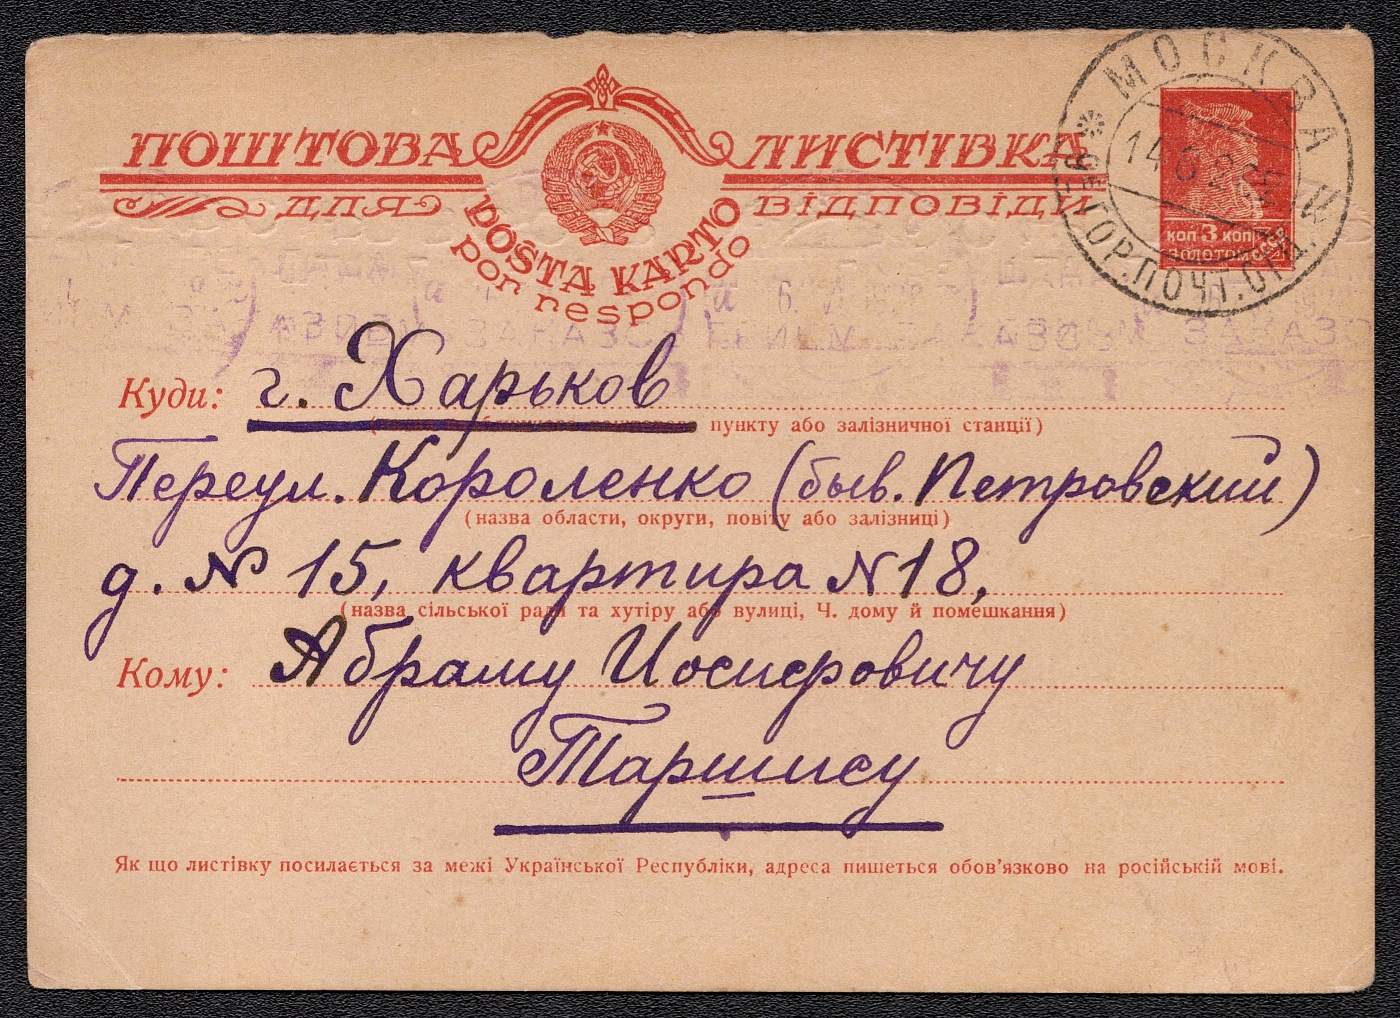 ПОШТОВА ЛИСТІВКА
ДЛЯ ВІДПОВІДИ
POŜTA KARTO
por respondo
МОСКВА
14.6.2
ГОР.ПОЧТ.
КОП 3 КОП
ЗОЛОТОМ
ЗАКАЗ
Куди: г. Харьков
пункту або залізничної станції)
Переул. Короленко (быв. Петровский)
(назва области, округи, повіту або залізниці)
д. № 15, квартира N 18,
(назва сільської ради та хутіру або вулиці, Ч. дому й помешкання)
Кому: Абраму Иосифовичу
Таршису
Як що листівку посилається за межі Української Республіки, адреса пишеться обов'язково на російській мові.